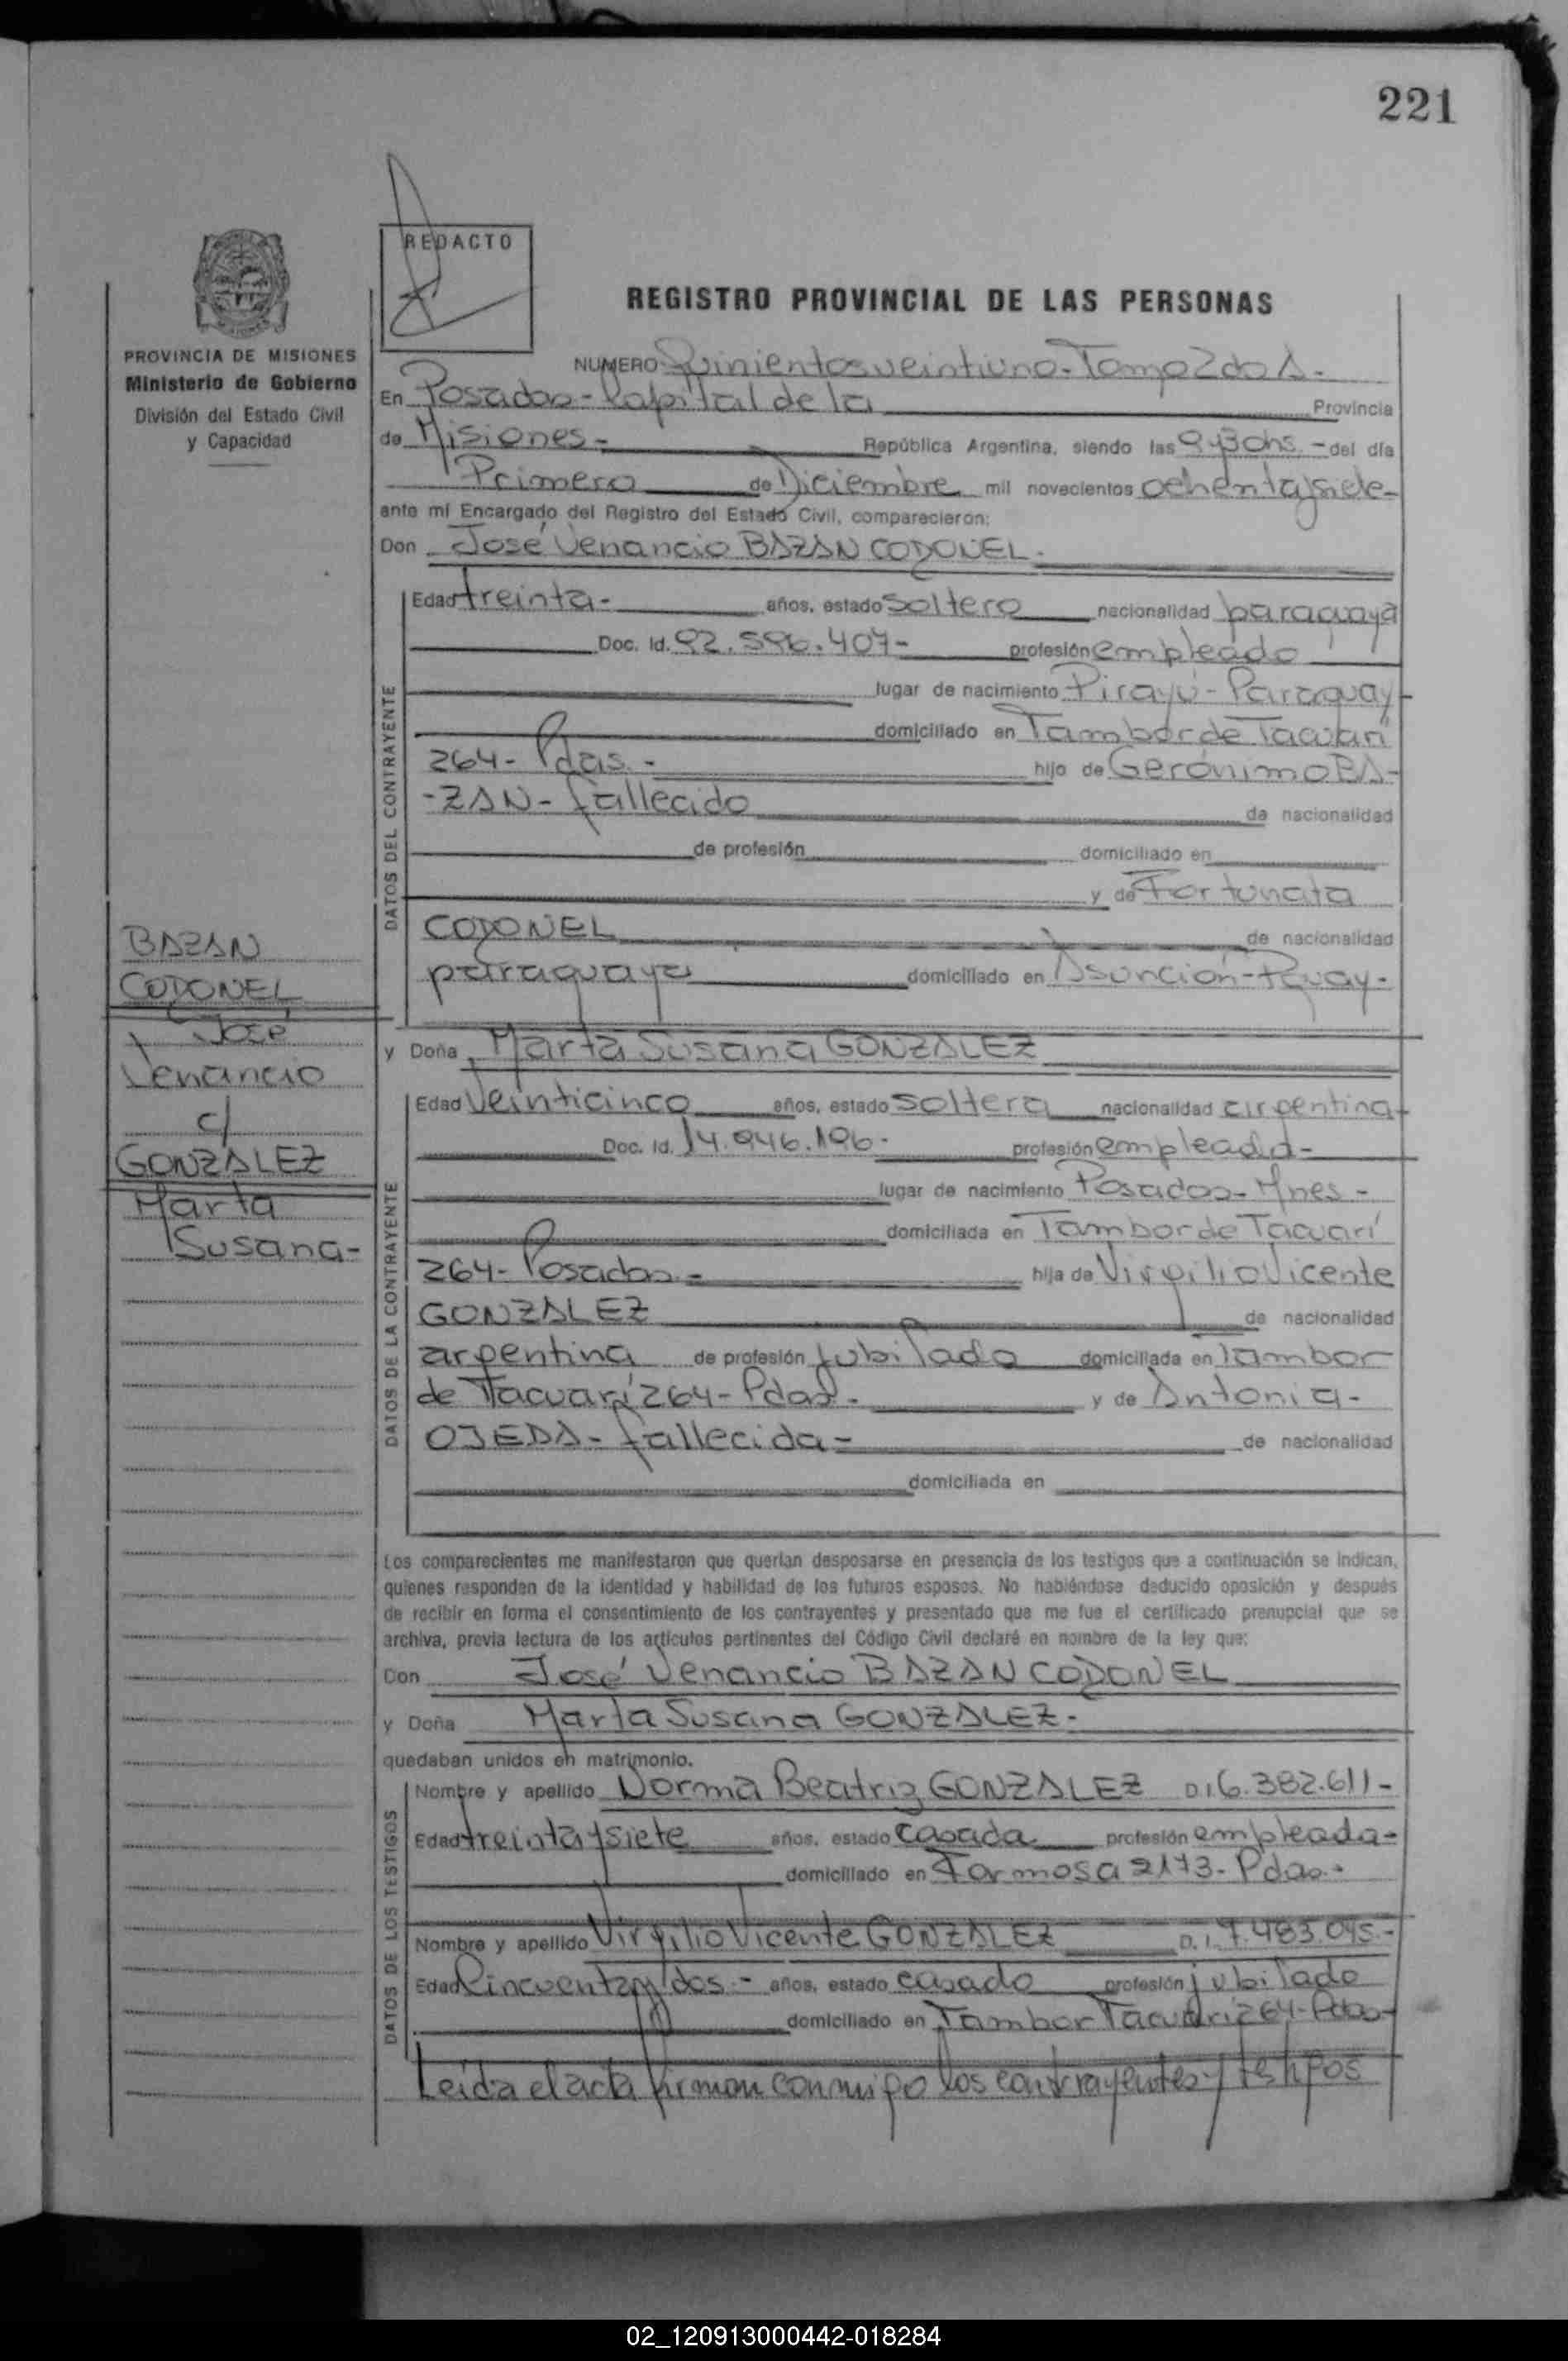 221
REDACTO
REGISTRO PROVINCIAL DE LAS PERSONAS
PROVINCIA DE MISIONES
Ministerio de Gobierno
División del Estado Civil
y Capacidad
NUMERO Quinientos veintiuno - Tomo 2do A -
En Posadas - Capital de la Provincia
de Misiones - República Argentina, siendo las 9 y 30 hs. - del día
Primero de Diciembre mil novecientos ochenta y siete -
ante mí Encargado del Registro del Estado Civil, comparecieron:
Don José Venancio BAZAN CORONEL -
DATOS DEL CONTRAYENTE
Edad treinta - años, estado soltero nacionalidad paraguaya
Doc. Id. 92.596.407 - profesión empleado
lugar de nacimiento Pirayú - Paraguay
domiciliado en Tambor de Tacuarí
264 - Pdas. - hijo de Gerónimo BA-
-ZAN - fallecido de nacionalidad
de profesión domiciliado en
y de Fortunata
CORONEL de nacionalidad
paraguaya domiciliado en Asunción - Pguay -
BAZAN
CORONEL
José
Venancio
c/
GONZALEZ
Marta
Susana -
y Doña Marta Susana GONZALEZ
DATOS DE LA CONTRAYENTE
Edad Veinticinco años, estado soltera nacionalidad argentina
Doc. Id. 14.946.196 - profesión empleada -
lugar de nacimiento Posadas - Mnes -
domiciliada en Tambor de Tacuarí
264 - Posadas - hija de Virgilio Vicente
GONZALEZ de nacionalidad
argentina de profesión jubilado domiciliada en Tambor
de Tacuarí 264 - Pdas - y de Antonia -
OJEDA - fallecida - de nacionalidad
domiciliada en
Los comparecientes me manifestaron que querían desposarse en presencia de los testigos que a continuación se indican,
quienes responden de la identidad y habilidad de los futuros esposos. No habiéndose deducido oposición y después
de recibir en forma el consentimiento de los contrayentes y presentado que me fue el certificado prenupcial que se
archiva, previa lectura de los artículos pertinentes del Código Civil declaré en nombre de la ley que:
Con José Venancio BAZAN CORONEL
y Doña Marta Susana GONZALEZ -
quedaban unidos en matrimonio.
DATOS DE LOS TESTIGOS
Nombre y apellido Norma Beatriz GONZALEZ D.I. 6.382.611 -
Edad treinta y siete años, estado casada profesión empleada -
domiciliado en Formosa 2173 - Pdas -
Nombre y apellido Virgilio Vicente GONZALEZ D.I. 7.483.045 -
Edad Cincuenta y dos - años, estado casado profesión jubilado
domiciliado en Tambor Tacuarí 264 - Pdas -
Leída el acta firman conmigo los contrayentes y testigos
02_120913000442-018284